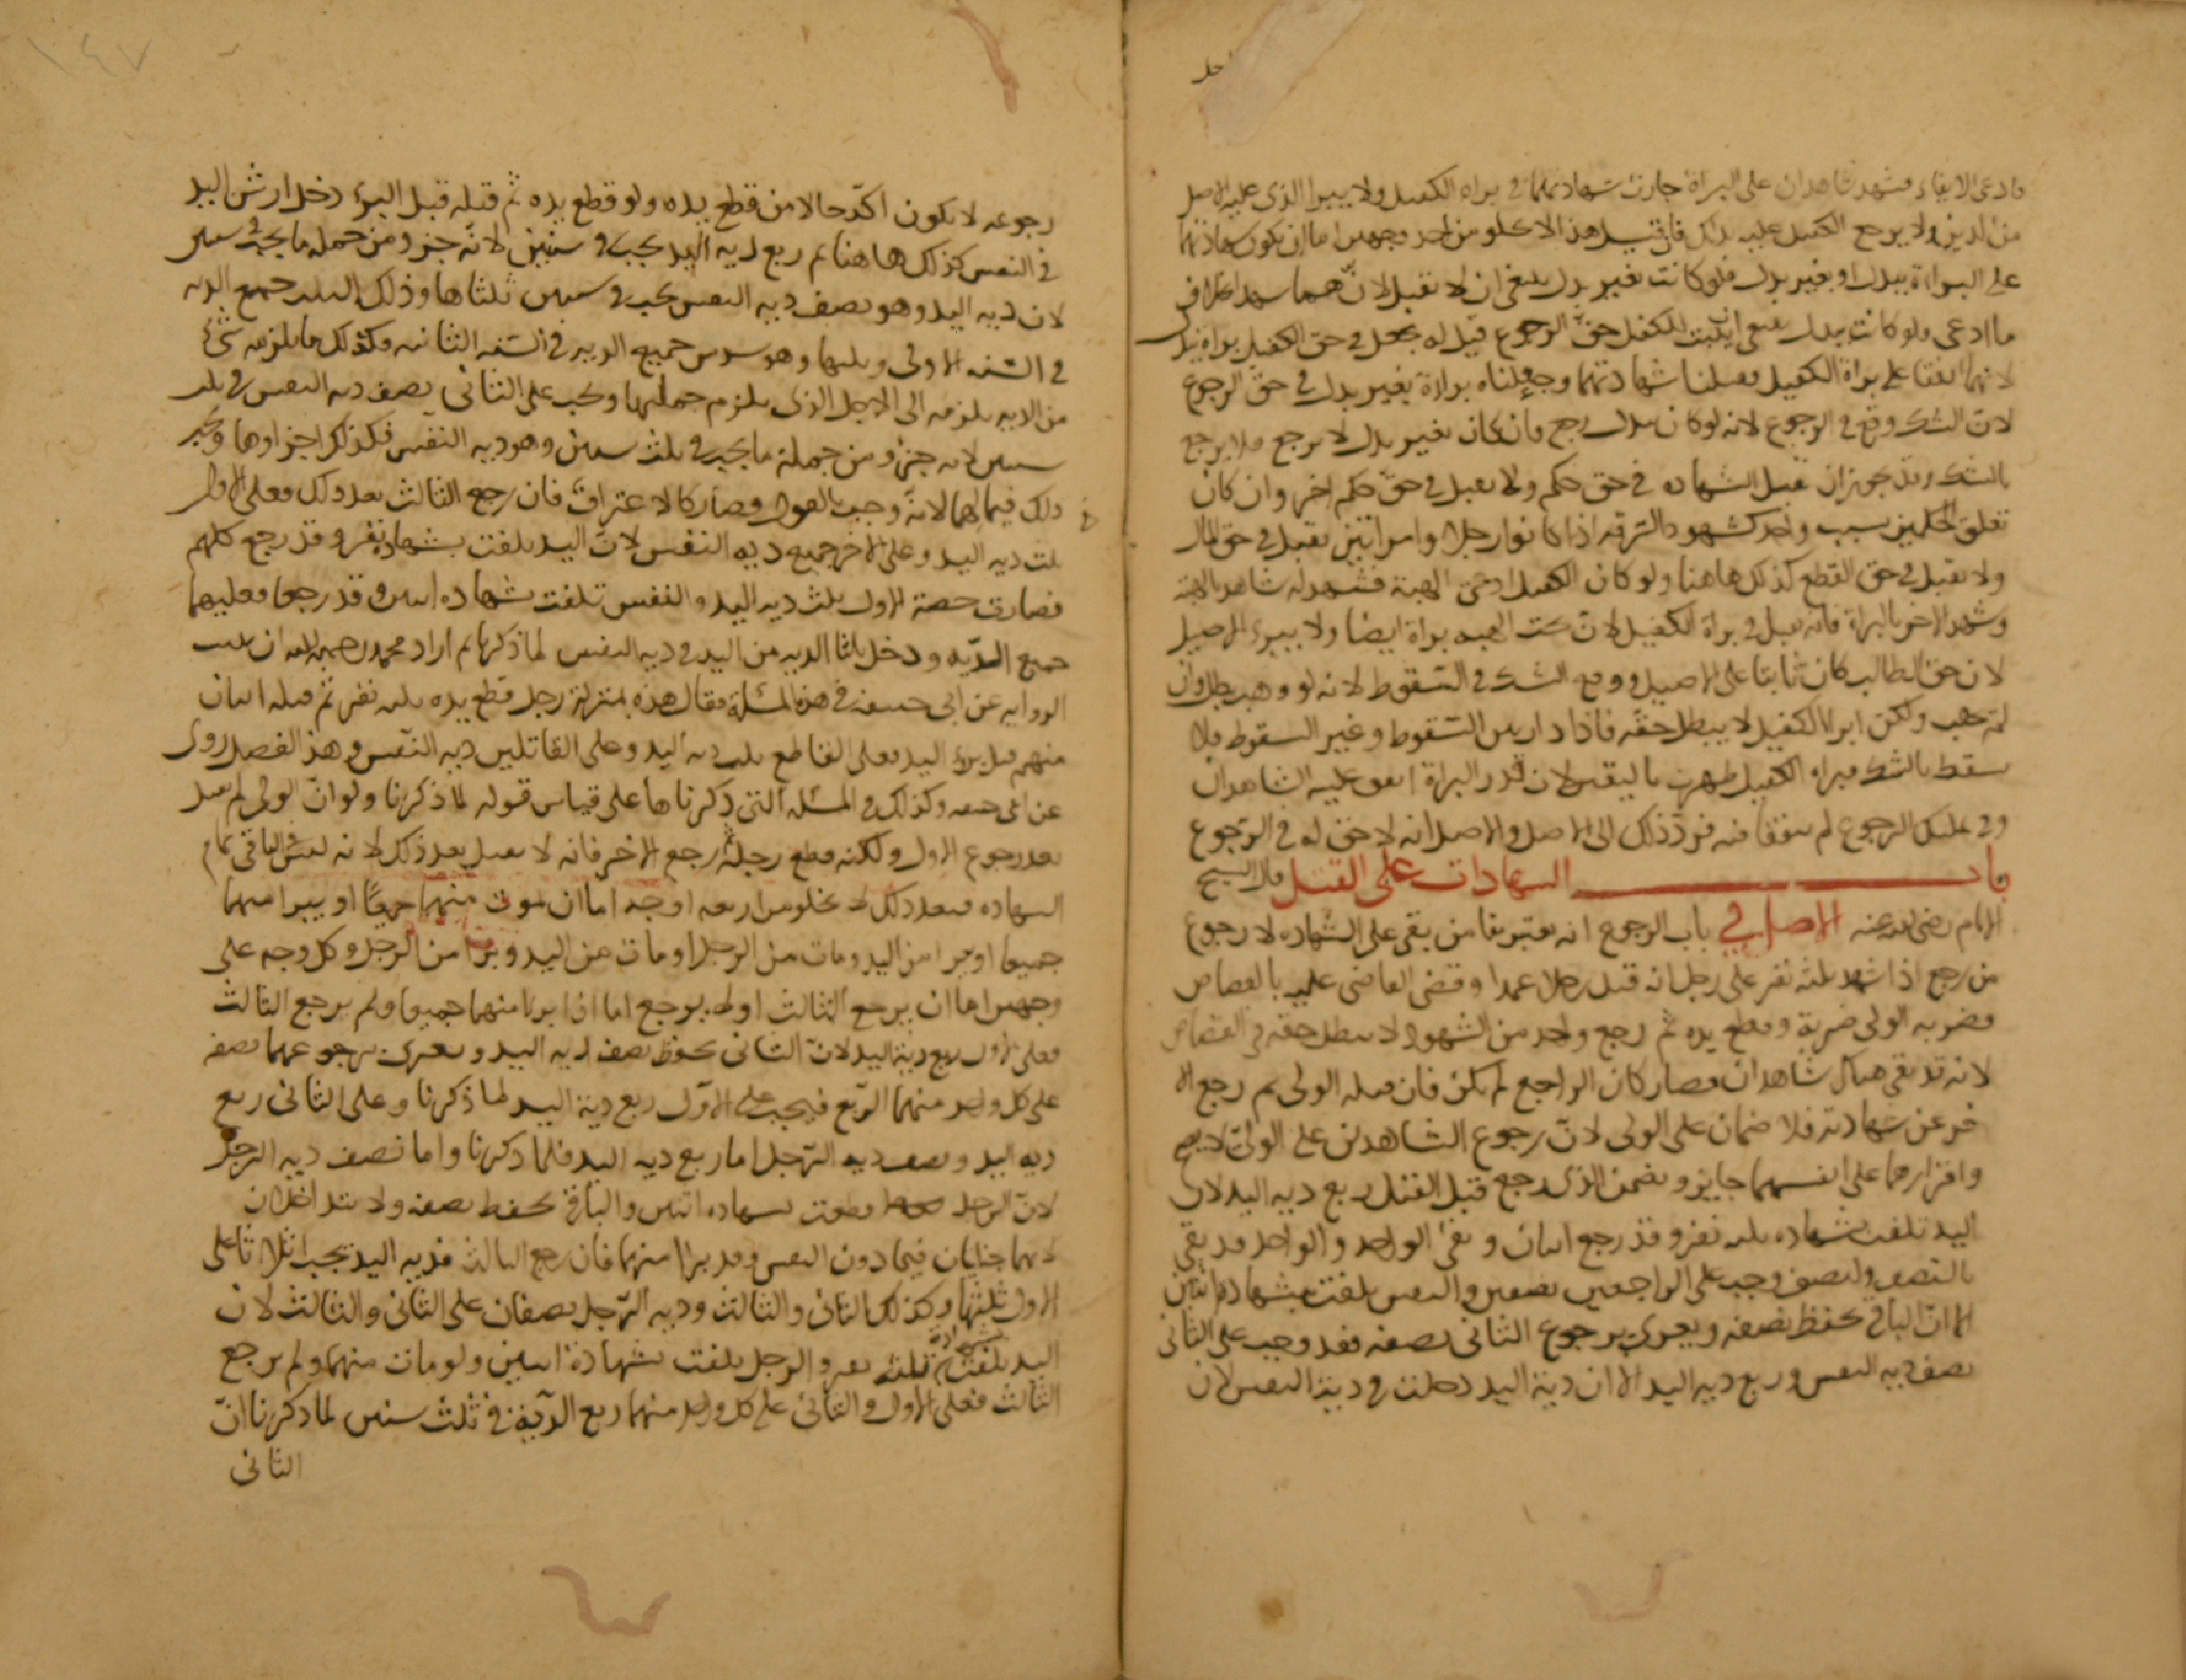 فادعى الايفاء فشهد شاهدان على البراة جازت شهادتهما في براه الكفيل ولا يبرا الذي عليه الاصل
من الدين ولا يرجع الكفيل عليه بذلك فان قيل هذا لا يخلو من احد وجهين اما ان يكون شهادتهما
على البراءة ببدل او بغير بدل فلو كانت بغير بدل ينبغي ان لا تقبل لانهما شهدا بخلاف
ما ادعى ولو كانت ببدل ينبغي ان يثبت للكفيل حق الرجوع قيل له يجعل في حق الكفيل براه ببدل
لانهما اتفقا على براة الكفيل فقبلنا شهادتهما وجعلناه براءة بغير بدل في حق الرجوع
لان الشك وقع في الرجوع لانه لو كان ببدل رجع وان كان بغير بدل لا يرجع فلا يرجع
بالشك وقد يجوز ان تقبل الشهاده في حق حكم ولا تقبل في حق حكم اخر وان كان
تعلق الحكمين بسبب واحد كشهود السرقه اذا كانوا رجلا وامراتين تقبل في حق المال
ولا تقبل في حق القطع كذلك هاهنا ولو كان الكفيل ادعى الهبة فشهد له شاهد بالهبة
وشهد الاخر بالبراة فانه تقبل في براة الكفيل لان تحت الهبه براة ايضا ولا يبرء الاصيل
لان حق الطالب كان ثابتا على الاصيل ووقع الشك في السقوط لانه لو وهب بطل وان
لم يهب ولكن ابرا الكفيل لا يبطل حقه فاذا دار بين السقوط وغير السقوط فلا
يسقط بالشك فبراه الكفيل ظهرت باليقين لان قدر البراة اتفق عليه الشاهدان
وفي تمليك الرجوع لم يتفقا فنه فرد ذلك الى الاصل والاصل انه لا حق له في الرجوع
باب الشهادات على القتل قال الشيخ
الامام رضي الله عنه الاصل في باب الرجوع انه يعتبر بقا من بقى على الشهاده لا رجوع
من رجع اذا شهد ثلثه نفر على رجل انه قتل رجلا عمدا وقضى القاضى عليه بالقصاص
فضربه الولى ضربة وقطع يده ثم رجع واحد من الشهود لا يبطل حقه في القصاص
لانه قد بقى هناك شاهدان فصار كان الراجع لم يكن فان قتله الولى ثم رجع الا
خر عن شهادته فلا ضمان على الولى لان رجوع الشاهدين على الولى لا يصح
واقرارهما على انفسهما جايز ويضمن الذى رجع قبل القتل ربع ديه اليد لان
اليد تلفت بشهاده ثلثه نفر وقد رجع اثنان وبقى الواحد والواحد قد بقى
بالنصف والنصف وجب على الراجعين نصفين والنفس تلفت بشهادة اثنين
الا ان الباقي يحفظ نصفه ويجرى برجوع الثانى نصفه فقد وجب على الثانى
نصف ديه النفس وربع ديه اليد الا ان دية اليد دخلت في دية النفس لان
رجوعه لا يكون اكد حالا من قطع يده ولو قطع يده ثم قتله قبل البرء دخل ارش اليد
في النفس كذلك هاهنا ثم ربع ديه اليد يجب في سنتين لانه جزو من جمله ما يجب في سنتين
لان ديه اليد وهو نصف ديه النفس يجب في سنتين ثلثاها وذلك الثلث جميع الديه
في السنه الاولى وثلثها وهو سدس جميع الديه في السنه الثانيه فكذلك ما يلزمه شئ
من الديه يلزمه الى الاجل الذى يلزم جملتها ويجب على الثانى نصف ديه النفس في ثلث
سنين لانه جزو من جملة ما يجب في ثلث سنين وهو ديه النفس فكذلك اجزاوها ويجب
ذلك فيمالهما لانه وجب بالقول وصار كالاعتراف فان رجع الثالث بعد ذلك فعلى الاول
ثلث ديه اليد وعلى الاخر جميع ديه النفس لان اليد تلفت بشهادة نفر وقد رجع كلهم
فصارت حصة الاول ثلث ديه اليد والنفس تلفت بشهاده اثنين وقد رجعا فعليهما
جميع الديه ودخل ثلثا الديه من اليد في ديه النفس لما ذكرنا ثم اراد محمد رحمه الله ان يثبت
الروايه عن ابي حنيفه في هذه المسئلة فقال هذه بمنزلة رجل قطع يده ثلثه نفر ثم قتله اثنان
منهم قبل برء اليد فعلى القاطع ثلث ديه اليد وعلى القاتلين ديه النفس وهذا الفصل روى
عن ابي حنيفه وكذلك في المسئله التى ذكرناها على قياس قوله لما ذكرنا ولو ان الولى لم يقتله
بعد رجوع الاول ولكنه قطع رجله ثم رجع الاخر فانه لا يقتل بعد ذلك لانه ليس في الباقى تمام
الشهاده فبعد ذلك لا يخلو من اربعه اوجه اما ان يموت منهما جميعا او يبرا منهما
جميعا او يبرا من اليد ومات من الرجل او مات من اليد وبرا من الرجل وكل وجه على
وجهين اما ان يرجع الثالث او لم يرجع اما اذا برا منهما جميعا ولم يرجع الثالث
فعلى الاول ربع دية اليد لان الثانى يحفظ نصف ديه اليد ويجرى برجوعهما نصفه
على كل واحد منهما الربع فيجب على الاول ربع دية اليد لما ذكرنا وعلى الثانى ربع
ديه اليد ونصف ديه الرجل اما ربع ديه اليد فلما ذكرنا واما نصف ديه الرجل
لان الرجل قطعت بشهاده اثنين والباقى يحفظ نصفه ولا يتداخلان
لانهما جنايتان فيما دون النفس وقد برا منهما فان رجع الثالث فديه اليد تجب اثلاثا على
الاول ثلثها وكذلك الثانى والثالث وديه الرجل نصفان على الثانى والثالث لان
اليد تلفت بشهادة ثلثه نفر والرجل تلفت بشهادة اثنين ولو مات منهما ولم يرجع
الثالث فعلى الاول والثانى على كل واحد منهما ربع الدية في ثلث سنين لما ذكرنا ان
الثانى